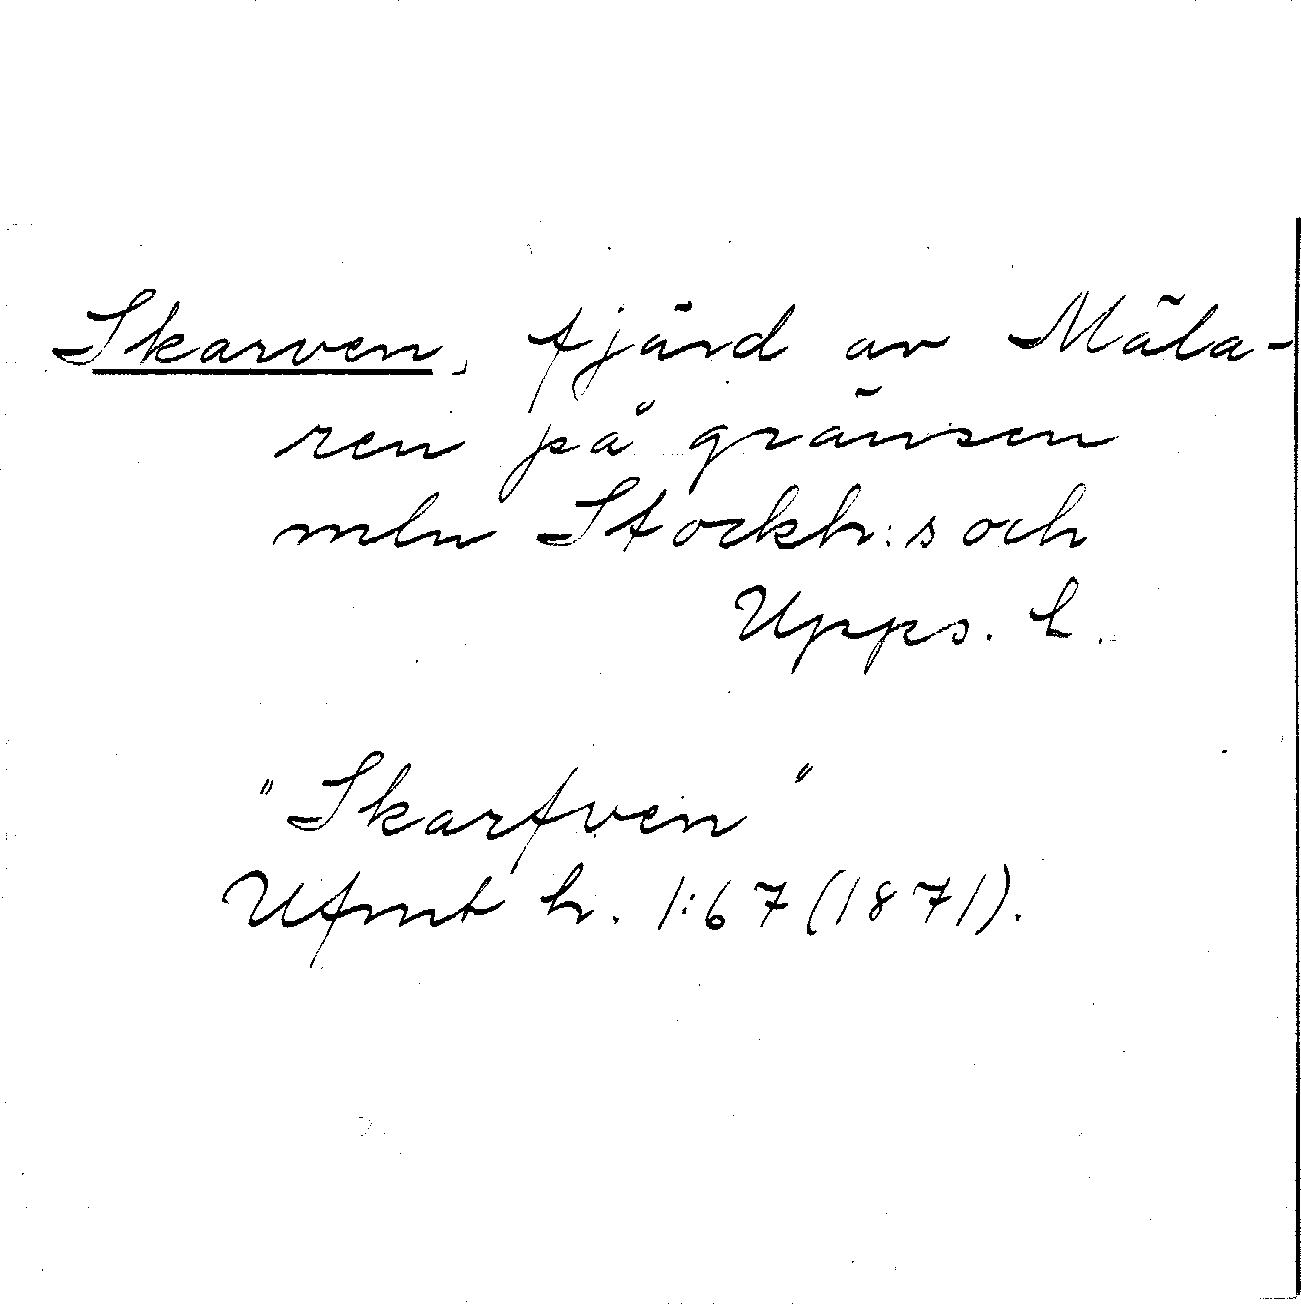 Skarven, fjärd av Mäla-
ren på gränsen
mln Stockh:s och
Upps. l.
"Skarfven"
Ufmt h. 1:67 (1871).